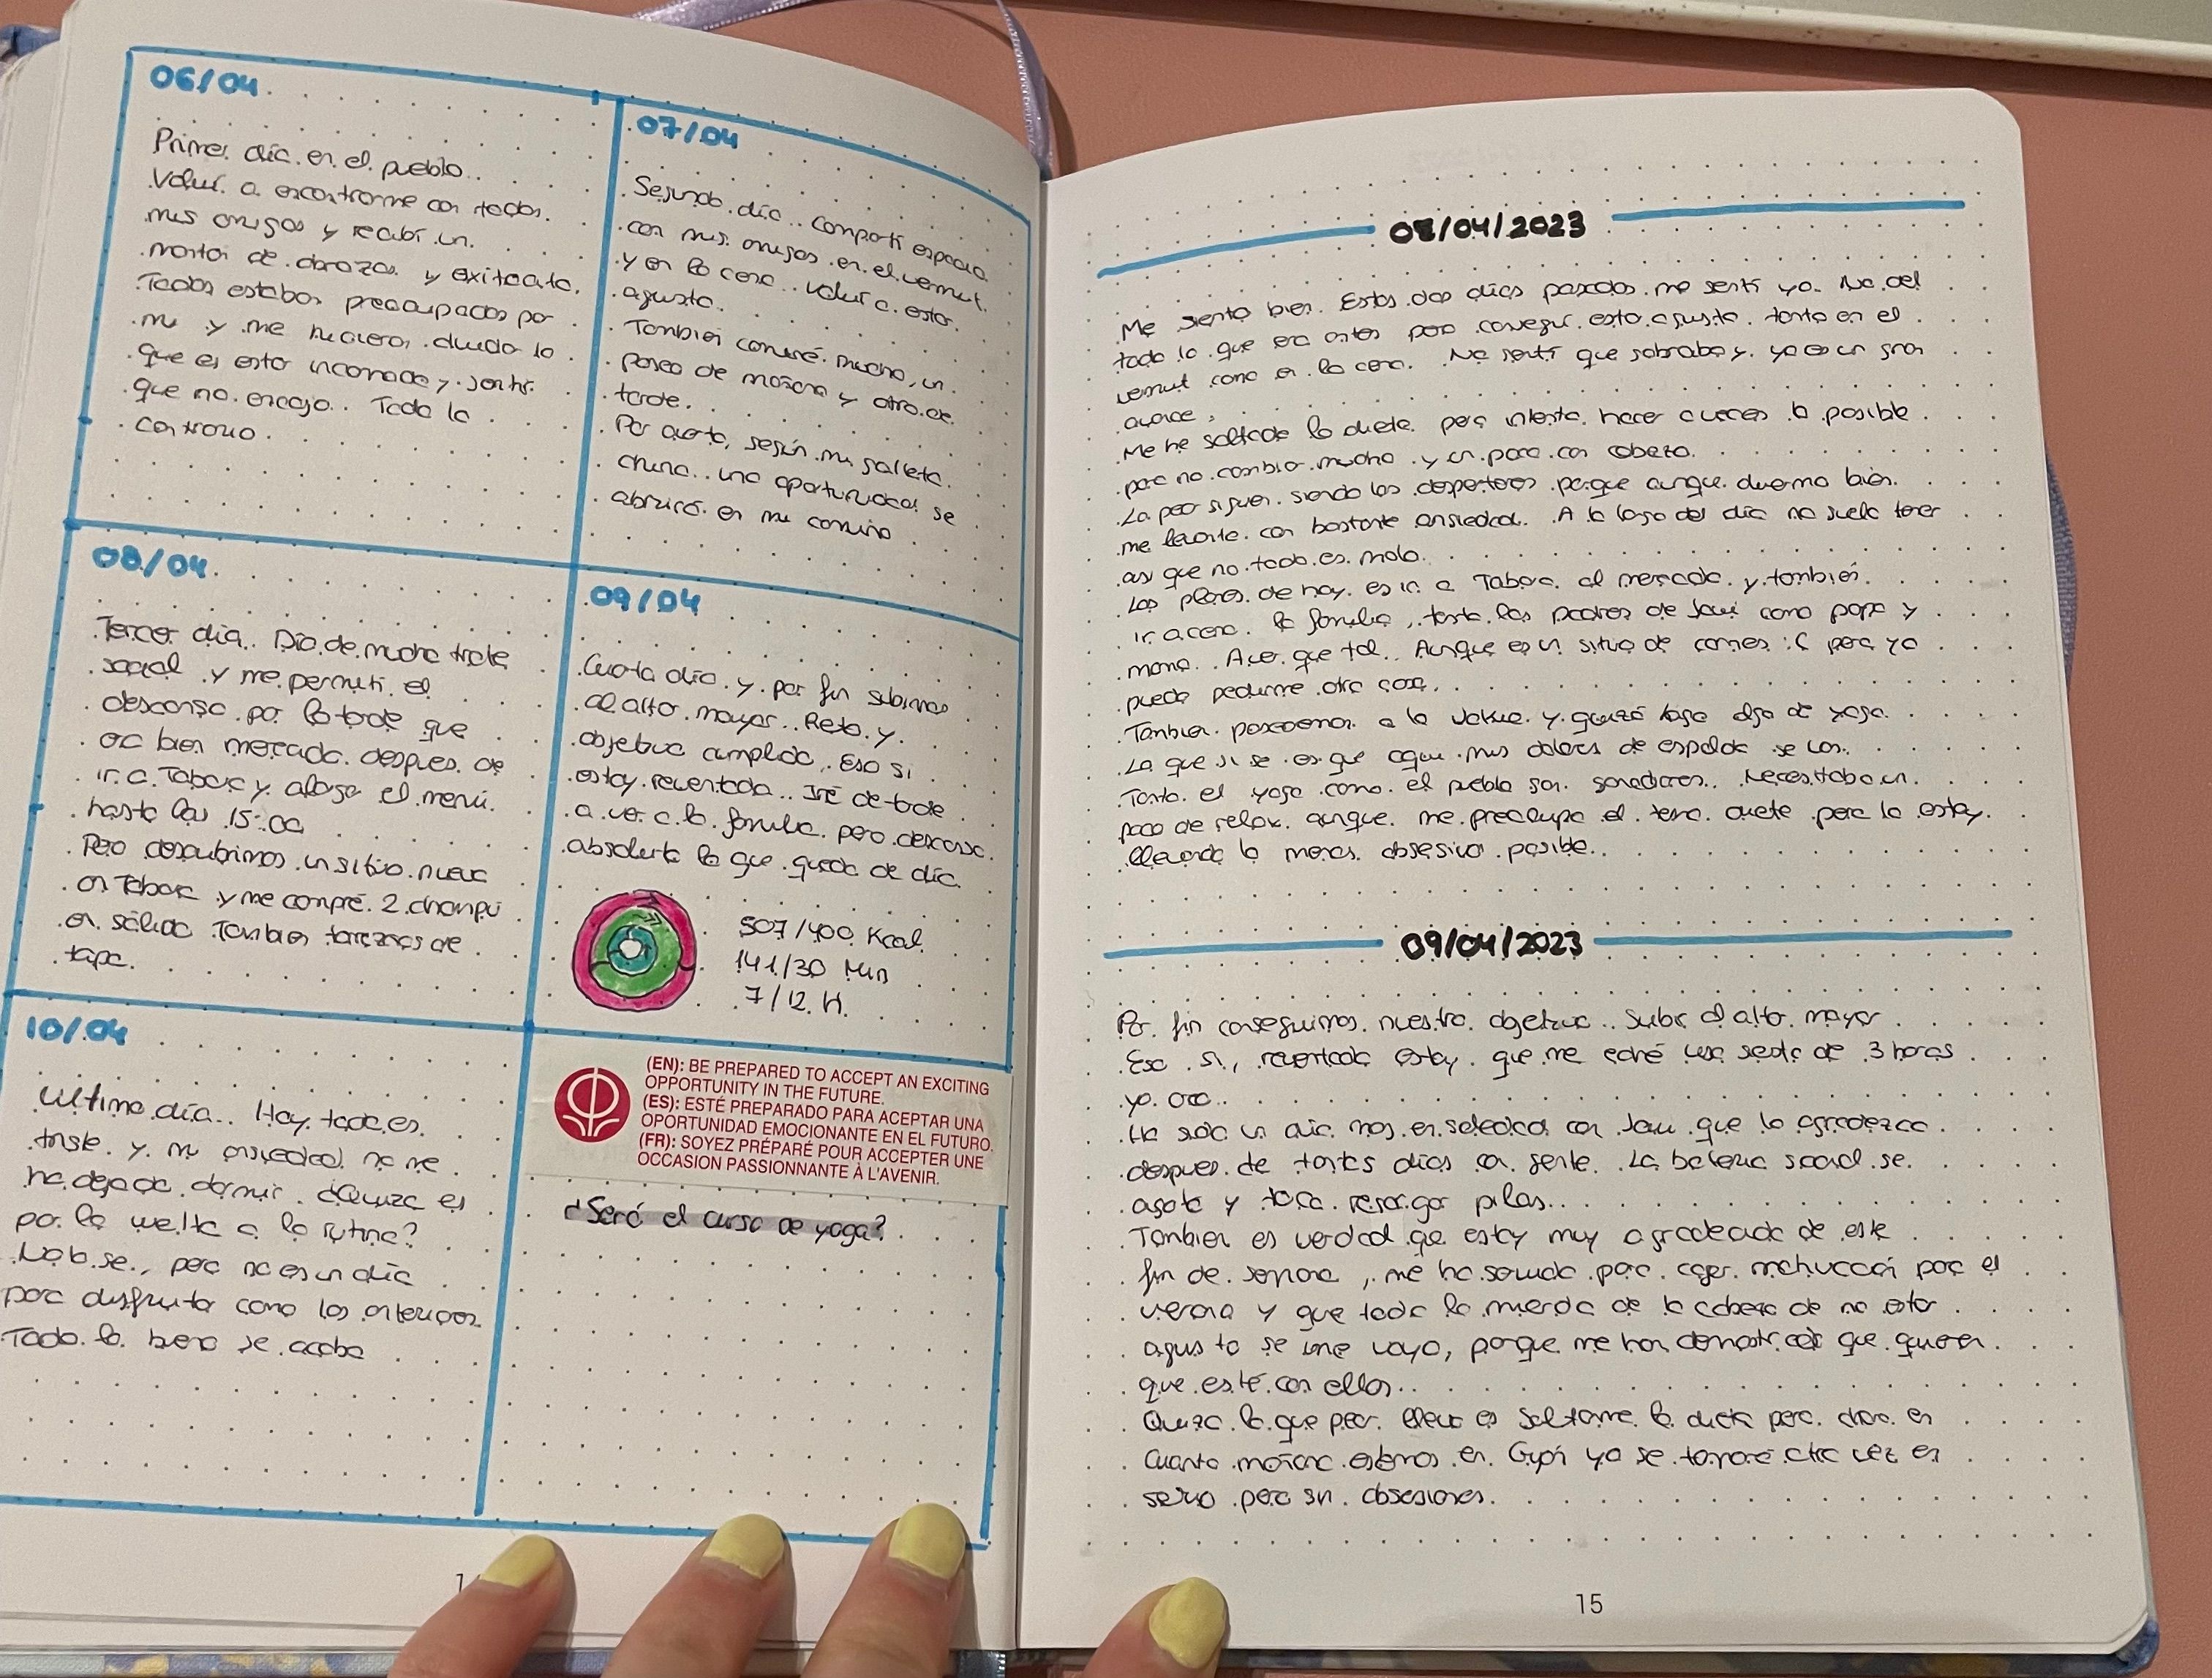 06/04
Primer día en el pueblo..
Volví a encontrarme con todos
mis amigos y recibí un
montón de abrazos y
Todos estaban preocupados por
mi y me hicieron duda lo
que es estar incomoda y sentir
que no encajo.. Todo lo
contrario.
07/04
Segundo día.. Compartí espacio
con mis amigos en el vermut
y en la cena.. Volví a estar
agusto.
Tambien caminé mucho, un
paseo de mañana y otro de
tarde.
Por cierto, según mi galleta
china.. una oportunidad se
abrirá en mi camino
08/04
Tercer día.. Día de mucho trote
social y me permití el
descanso por la tarde que
oc bien merecado despues de
ir a Tabara y alargar el menú
hasta las 15:00
Pero descubrimos un sitio nuevo
en Tabara y me compré 2 champú
en sólido Tambien torreznos de
tapa.
09/04
Cuarto día y por fin subimos
al alto mayor.. Reto y
objetivo cumplido. Eso si
estoy reventada.. Iré de tarde
a ver a la familia pero descanso
absoluto lo que queda de día.
507/400 Kcal
141/30 Min
7/12 H.
10/04
Ultimo día.. Hoy todo es
triste y mi ansiedad no me
ha dejado dormir. ¿Quiza es
por la vuelta a la rutina?
No lo se., pero no es un día
para disfrutar como los anteriores
Todo lo bueno se acaba
(EN): BE PREPARED TO ACCEPT AN EXCITING
OPPORTUNITY IN THE FUTURE.
(ES): ESTÉ PREPARADO PARA ACEPTAR UNA
OPORTUNIDAD EMOCIONANTE EN EL FUTURO.
(FR): SOYEZ PRÉPARÉ POUR ACCEPTER UNE
OCCASION PASSIONNANTE À L'AVENIR.
¿Será el curso de yoga?
08/04/2023
Me siento bien. Estos dos días pasados me sentí yo. No del
todo lo que era antes pero conseguí estar agusto tanto en el
vermut como en la cena. No sentí que sobraba y ya es un gran
avance.
Me he saltado la dieta pero intento hacer a veces lo posible
por no cambiar mucho y un poco con cabeza.
Lo peor siguen siendo los despertares porque aunque duermo bien
me levanto con bastante ansiedad. A lo largo del día no suelo tener
asi que no todo es malo.
Los planes de hoy es ir a Tabara al mercado y tambien
ir a cenar la familia, tanto los padres de Javi como papa y
mama. A ver que tal.. Aunque es un sitio de carnes :( pero yo
puedo pedirme otra cosa.
Tambien pasearemos a la Vakue y quizá hago algo de yoga.
Lo que si se es que aqui mis dolores de espalda se van.
Tanto el yoga como el pueblo son sanadores.. Necesitaba un
poco de relax aunque me preocupa el tema dieta pero lo estoy
llevando lo menos obsesivo posible..
09/04/2023
Por fin conseguimos nuestro objetivo.. Subir al alto mayor
Eso si, reventada estoy que me eché una siesta de 3 horas
yo creo..
Ha sido un día mas en soledad con Javi que lo agradezco
despues de tantos días con gente. La batería social se
agota y toca recargar pilas..
Tambien es verdad que estoy muy agradecida de este
fin de semana, me ha servido para coger motivación para el
verano y que toda la mierda de la cabeza de no estar
agusto se me vaya, porque me han demostrado que quieren
que esté con ellos..
Quiza lo que peor llevo es saltarme la dieta pero claro en
cuanto mañana estemos en Gijón ya se tomaré otra vez en
serio pero sin obsesiones.
15